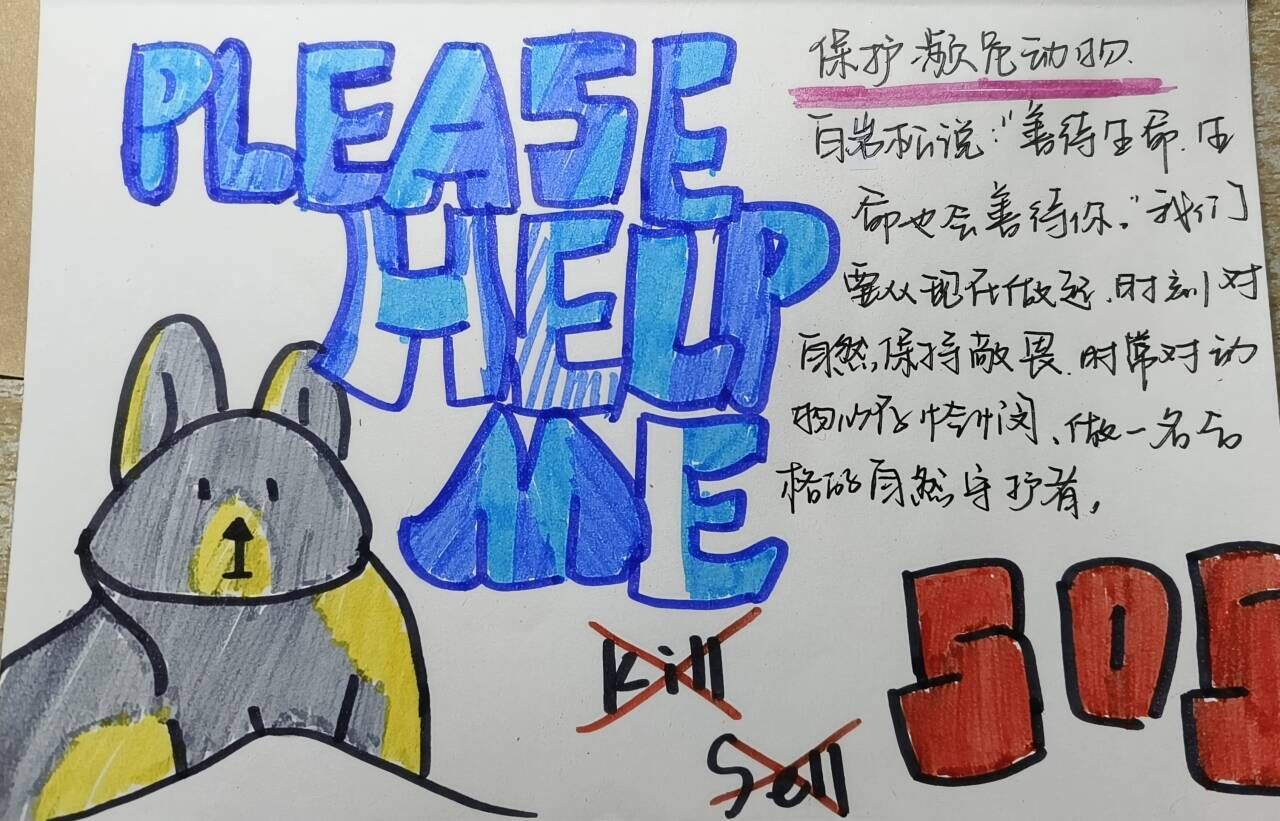 PLEASE
HELP
ME
保护濒危动物
白岩松说："善待生命.生
命也会善待你。"我们
要从现在做起、时刻对
自然保持敬畏.时常对动
物心存怜悯、做一名合
格的自然守护者。
Kill
Sell
SOS